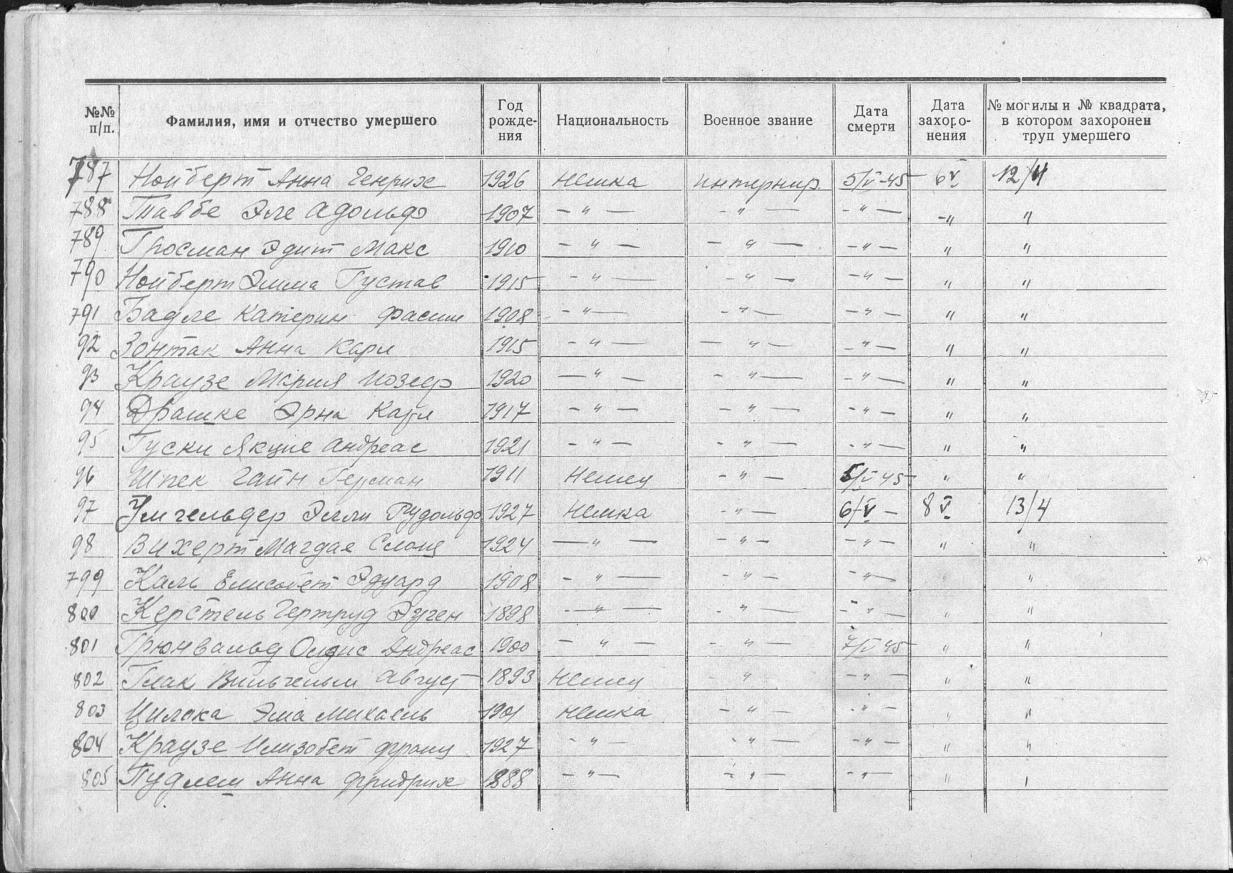 №№ п/п. Фамилия, имя и отчество умершего Год рожде- ния Национальность Военное звание Дата смерти Дата захоро- нения № могилы и № квадрата, в котором захоронен труп умершего
787 Нойберт Анна Генрих 1926 немка интернир. 5/V-45 6 V 12/4
788 Таббе Эле Адольф 1907 - " - - " - - " - - " "
789 Гросман Эдит Макс 1910 - " - - " - - " - " "
790 Нойберт Эмма Густав 1915 - " - - " - - " - " "
791 Бадле Катерин 1908 - " - - " - - " - " "
92 Зонтак Анна Карл 1915 - " - - " - - " - " "
93 Краузе Мария Иозеф 1920 - " - - " - - " - " "
94 Драшке Эрна Карл 1917 - " - - " - - " - " "
95 Гуски Андреас 1921 - " - - " - - " - " "
96 Шпек Гайн Герман 1911 Немец - " - 5/V-45 " "
97 Элли Рудольф 1927 Немка - " - 6/V - 8 V 13/4
98 Вихерт Магдал 1924 - " - - " - - " - " "
799 Каль Елисабет Эдуард 1908 - " - - " - - " - " "
800 Керстель Гертруд Эуген 1898 - " - - " - - " - " "
801 Грюнвальд Андреас 1900 - " - - " - 7/V-45 " "
802 Глак Вильгельм Август 1893 Немец - " - - " - " "
803 Цилска Эма Михаель 1901 немка - " - - " - " "
804 Краузе Илизобет Франц 1927 - " - - " - - " - " "
805 Анна Фридрих 1888 - " - - " - - " - " "